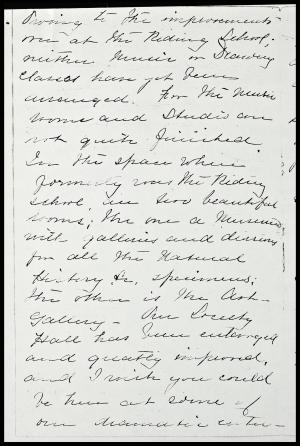 Owing to the improvements
now at the Riding School;
neither Music or Drawing
Classes have yet been
arranged. For the Music
rooms and Studio are
not quite finished.
In the space where
formerly was the Riding
School, are two beautiful
rooms; the one a Museum
with galleries and divisions
for all the Natural
History &c. specimens;
the other is the Art
Gallery – Our Society
Hall has been enlarged
and greatly improved,
and I wish you could
be here at some of
our dramatic enter-